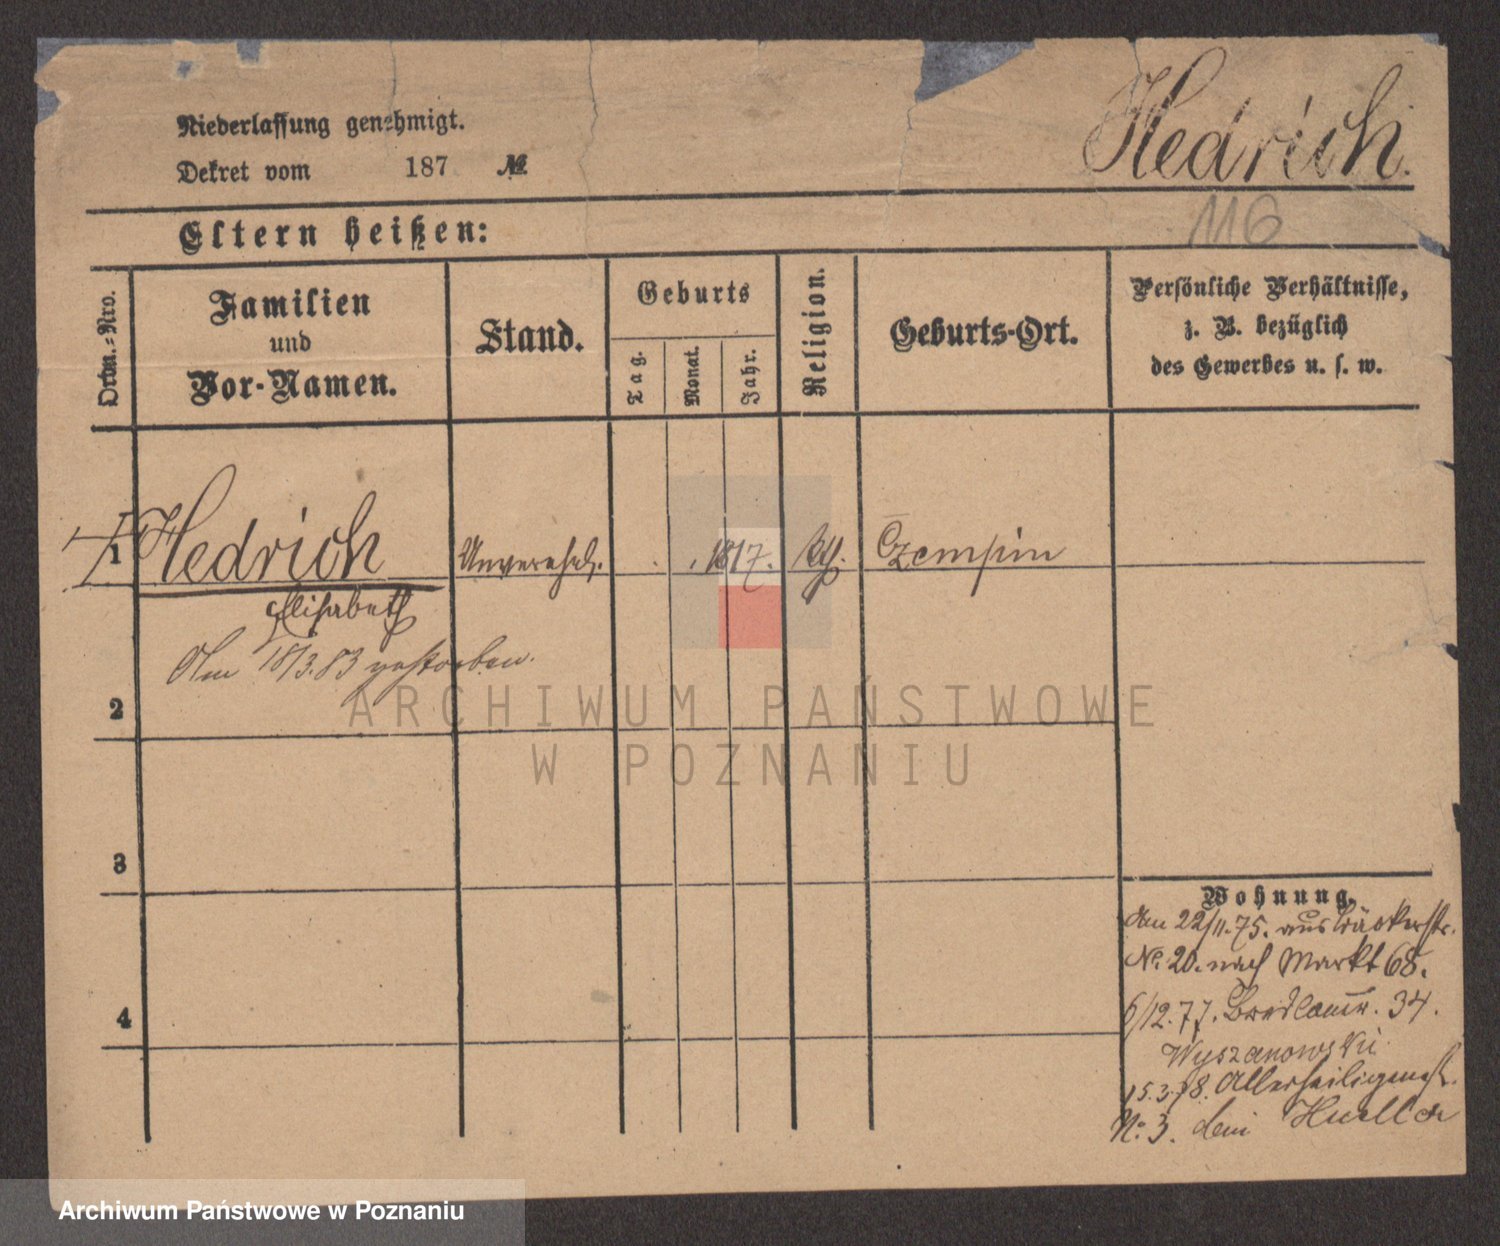 Niederlassung genehmigt.
Dekret vom 187 №
Hedrich.
116
Eltern heißen:
Ordn.-Nro.
Familien
und
Vor-Namen.
Stand.
Geburts
Tag.
Monat.
Jahr.
Religion.
Geburts-Ort.
Persönliche Verhältnisse,
z. B. bezüglich
des Gewerbes u. s. w.
1 Hedrich Unverehel. 1817. kth. Czempin
Elisabeth
Am 18/3.83 gestorben.
2
ARCHIWUM PAŃSTWOWE
W POZNANIU
3
4
Wohnung.
Am 22/11.75. aus Bäckerstr.
No. 20. nach Markt 68.
6/12.77. 34.
Wyszanowski
15.3.78. Allerheiligenstr.
No. 3. bei
Archiwum Państwowe w Poznaniu